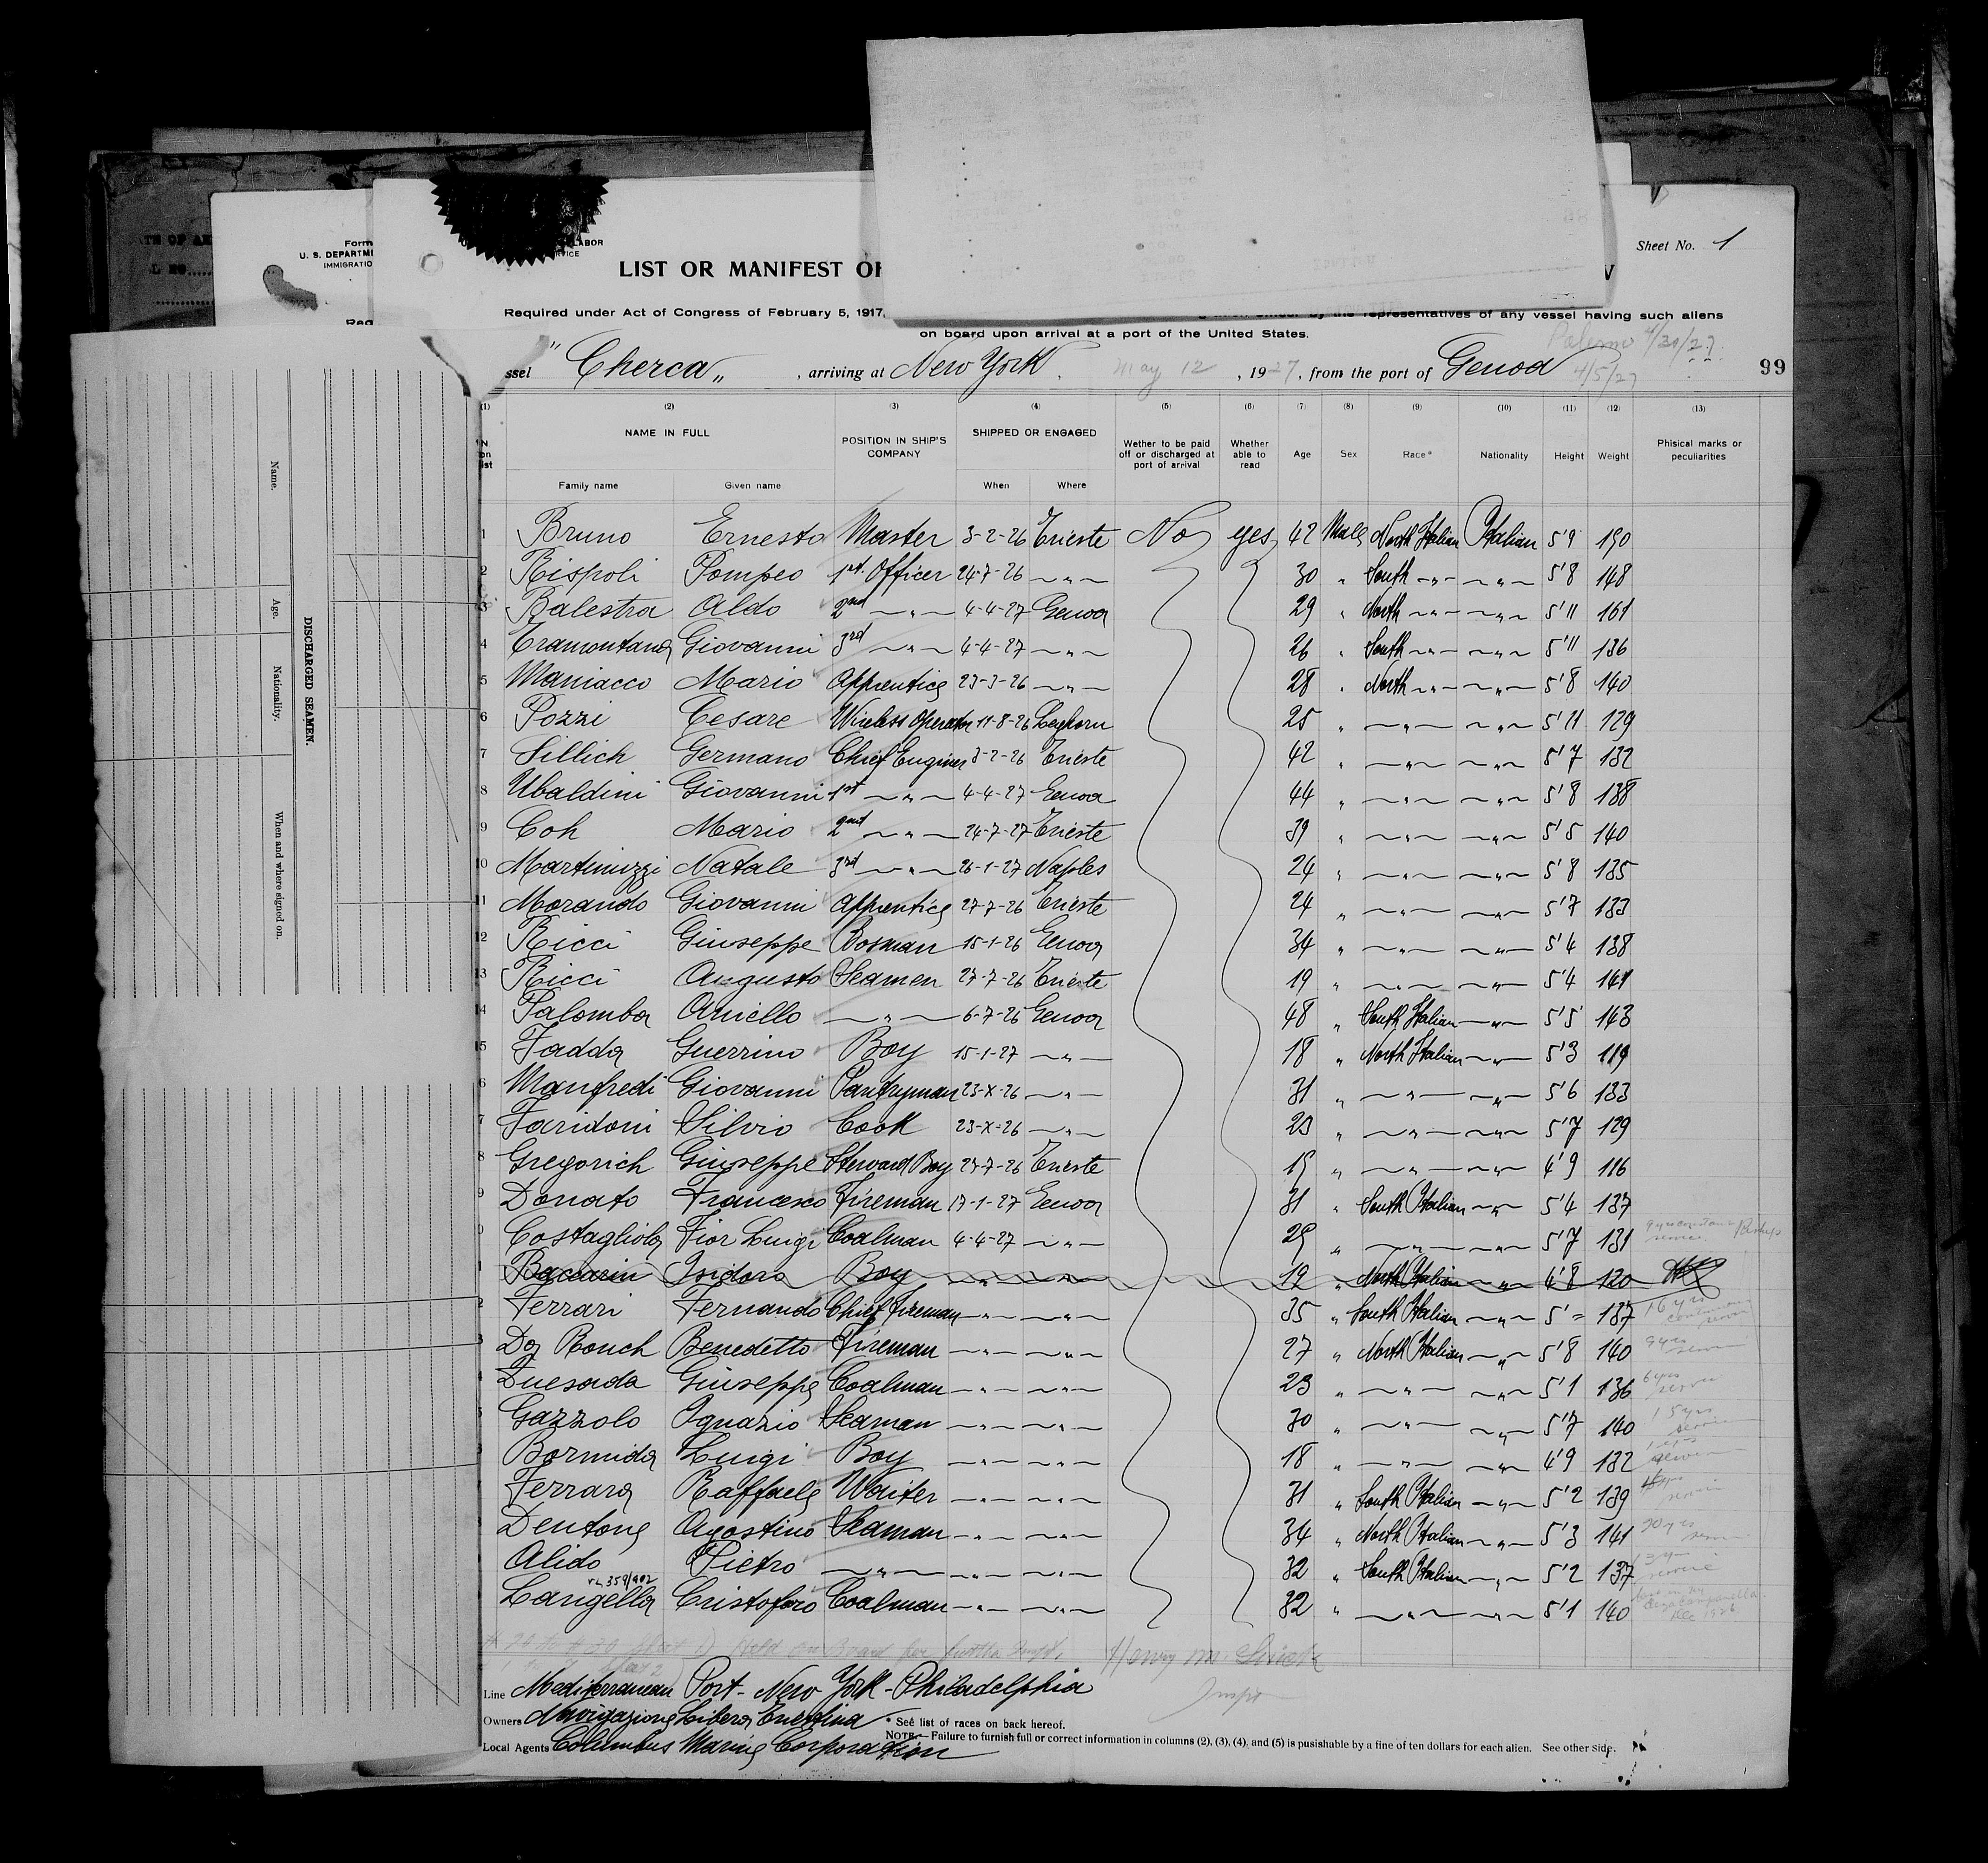 Form
U. S. DEPARTM
IMMIGRATIO
LABOR
LIST OR MANIFEST OF
Sheet No. 1
Required under Act of Congress of February 5, 1917,
representatives of any vessel having such aliens
on board upon arrival at a port of the United States.
Palermo
ssel "Cherca„ , arriving at New York , May 12 , 1927 , from the port of Genoa 4/5/27 99
(1) (2) (3) (4) (5) (6) (7) (8) (9) (10) (11) (12) (13)
NAME IN FULL POSITION IN SHIP'S COMPANY SHIPPED OR ENGAGED Wether to be paid off or discharged at port of arrival Whether able to read Age Sex Race* Nationality Height Weight Phisical marks or peculiarities
Family name Given name When Where
1 Bruno Ernesto Master 3-2-26 Trieste No yes 42 Male North Italian Italian 5'9 190
2 Rispoli Pompeo 1st. Officer 24-7-26 —„— 30 „ South —„— —„— 5'8 148
3 Balestra Aldo 2nd —„— 4-4-27 Genoa 29 „ North —„— —„— 5'11 161
4 Tramontana Giovanni 3rd —„— 4-4-27 —„— 26 „ South —„— —„— 5'11 136
5 Maniacco Mario Apprentice 23-3-26 —„— 28 „ North —„— —„— 5'8 140
6 Pozzi Cesare Wireless Operator 11-8-26 Leghorn 25 „ —„— —„— 5'11 129
7 Sillich Germano Chief Engineer 3-2-26 Trieste 42 „ —„— —„— 5'7 132
8 Ubaldini Giovanni 1st —„— 4-4-27 Genoa 44 „ —„— —„— 5'8 138
9 Coh Mario 2nd —„— 24-7-27 Trieste 39 „ —„— —„— 5'5 140
10 Martinuzzi Natale 3rd —„— 26-1-27 Naples 24 „ —„— —„— 5'8 135
11 Morando Giovanni Apprentice 27-7-26 Trieste 24 „ —„— —„— 5'7 133
12 Ricci Giuseppe Bosman 15-1-26 Genoa 34 „ —„— —„— 5'4 138
13 Ricci Augusto Seamen 27-7-26 Trieste 19 „ —„— —„— 5'4 141
14 Palomba Aniello —„— 6-7-26 Genoa 48 „ South Italian —„— 5'5 143
15 Fadda Guerrino Boy 15-1-27 —„— 18 „ North Italian —„— 5'3 119
6 Manfredi Giovanni Pantryman 23-X-26 —„— 31 „ —„— —„— 5'6 133
7 Faridoni Silvio Cook 23-X-26 —„— 23 „ —„— —„— 5'7 129
8 Gregorich Giuseppe Steward Boy 27-7-26 Trieste 15 „ —„— —„— 4'9 116
9 Donato Francesco Fireman 17-1-27 Genoa 31 „ South Italian —„— 5'4 137
0 Costagliola Fior Luigi Coalman 4-4-27 —„— 29 „ —„— —„— 5'7 131
1 Baccarin Isidoro Boy —„— —„— 19 „ North Italian —„— 4'8 120
2 Ferrari Fernando Chief Fireman —„— —„— 35 „ South Italian —„— 5'= 137 16 yrs
3 Da Ronch Benedetto Fireman —„— —„— 27 „ North Italian —„— 5'8 140
Zuesada Giuseppe Coalman —„— —„— 23 „ —„— —„— 5'1 136 6 yrs
Gazzolo Ignazio Seaman —„— —„— 30 „ —„— —„— 5'7 140 15 yrs
Bormida Luigi Boy —„— —„— 18 „ —„— —„— 4'9 132
Ferrara Raffaele Waiter —„— —„— 31 „ South Italian —„— 5'2 139
Dentone Agostino Seaman —„— —„— 34 „ North Italian —„— 5'3 141 20 yrs
Alido Pietro —„— —„— —„— 32 „ South Italian —„— 5'2 137
359/902
Langella Cristoforo Coalman —„— —„— 32 „ —„— —„— 5'1 140
Held on Board for further
Line Mediterranean Port - New York - Philadelphia
Owners Navigazione Libera Triestina
* See list of races on back hereof.
NOTE.— Failure to furnish full or correct information in columns (2), (3), (4), and (5) is pusishable by a fine of ten dollars for each alien. See other side.
Local Agents Columbus Marine Corporation
DISCHARGED SEAMEN.
Name.
Age.
Nationality.
When and where signed on.